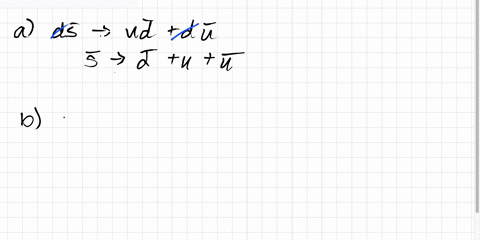 a) ds̄ → ud̄ + dū
s̄ → d̄ + u + ū
b)